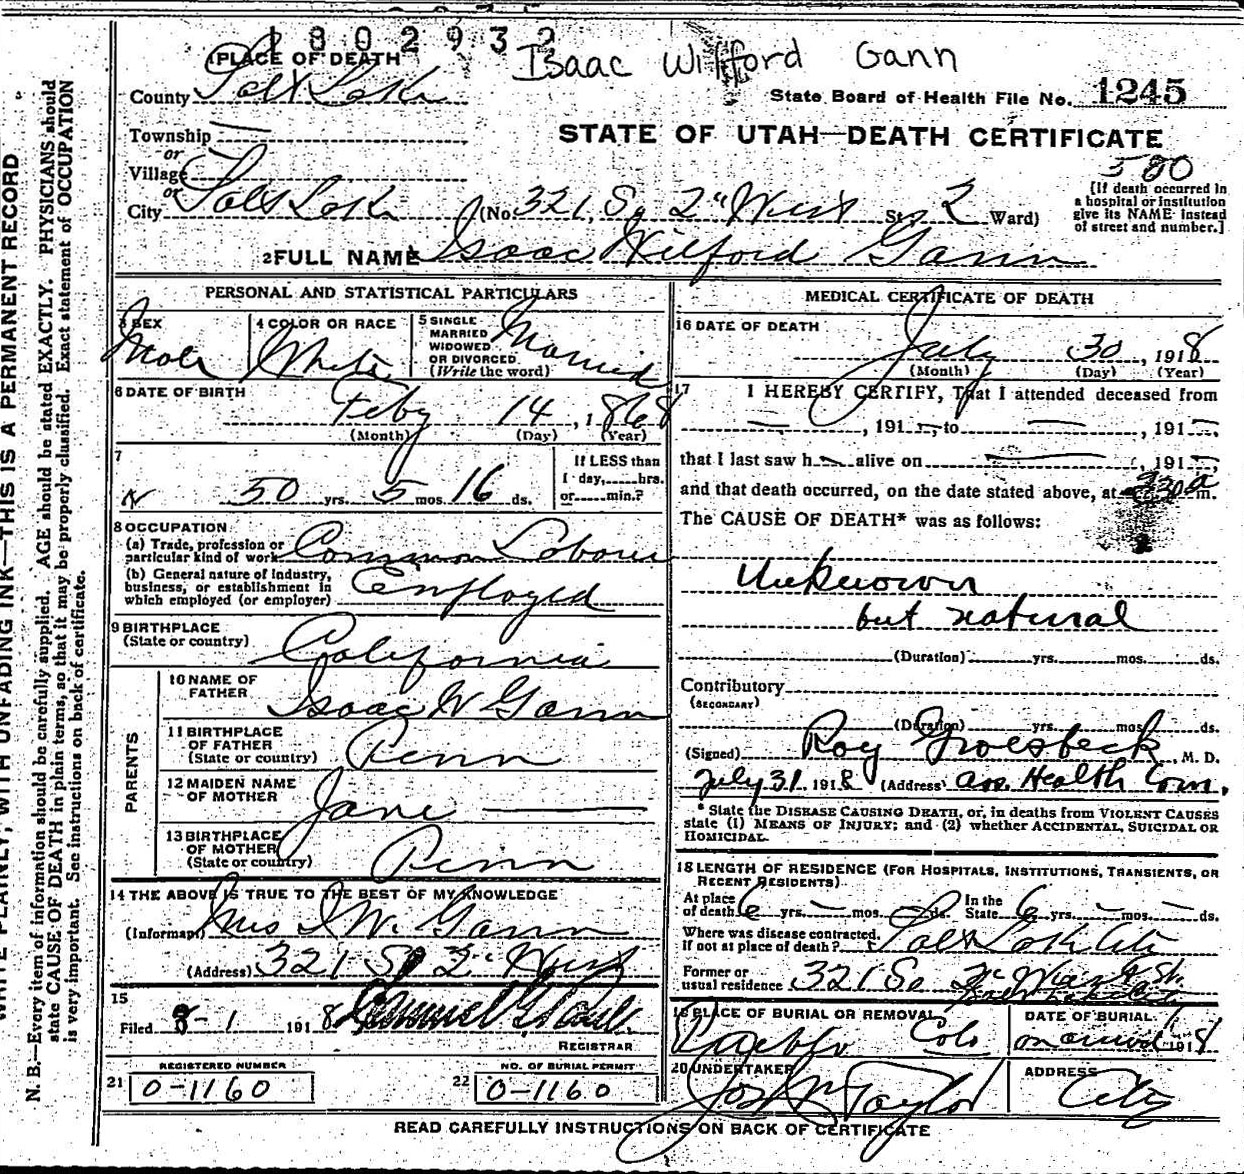 1802932
Isaac Wilford Gann
1 PLACE OF DEATH
County Salt Lake
State Board of Health File No. 1245
Township —
STATE OF UTAH—DEATH CERTIFICATE
or
Village
or
580
City Salt Lake (No. 321, So 2" West St., 2 Ward)
[If death occurred in
a hospital or institution
give its NAME instead
of street and number.]
2 FULL NAME Isaac Wilford Gann
PERSONAL AND STATISTICAL PARTICULARS
3 SEX
Male
4 COLOR OR RACE
White
5 SINGLE
MARRIED
WIDOWED
OR DIVORCED
(Write the word)
Married
6 DATE OF BIRTH
Feby 14, 1868
(Month) (Day) (Year)
7
50 yrs. 5 mos. 16 ds.
If LESS than
1 day, hrs.
or min.?
8 OCCUPATION
(a) Trade, profession or
particular kind of work Common Laborer
(b) General nature of industry,
business, or establishment in
which employed (or employer) Employed
9 BIRTHPLACE
(State or country) California
PARENTS
10 NAME OF
FATHER Isaac W Gann
11 BIRTHPLACE
OF FATHER
(State or country) Penn
12 MAIDEN NAME
OF MOTHER Jane —
13 BIRTHPLACE
OF MOTHER
(State or country) Penn
14 THE ABOVE IS TRUE TO THE BEST OF MY KNOWLEDGE
(Informant) Mrs I. W. Gann
(Address) 321 So 2" West
15
Filed 8-1 1918
REGISTRAR
REGISTERED NUMBER
21 0-1160
NO. OF BURIAL PERMIT
22 0-1160
MEDICAL CERTIFICATE OF DEATH
16 DATE OF DEATH
July 30, 1918
(Month) (Day) (Year)
17 I HEREBY CERTIFY, That I attended deceased from
—, 191—, to —, 191—,
that I last saw h— alive on —, 191—,
and that death occurred, on the date stated above, at 330 a m.
The CAUSE OF DEATH* was as follows:
Unknown
but natural
(Duration) yrs. mos. ds.
Contributory
(SECONDARY)
(Duration) yrs. mos. ds.
(Signed) Roy Groesbeck, M. D.
July 31 1918 (Address) ass. Health Com.
* State the DISEASE CAUSING DEATH, or, in deaths from VIOLENT CAUSES
state (1) MEANS OF INJURY; and (2) whether ACCIDENTAL, SUICIDAL OR
HOMICIDAL.
18 LENGTH OF RESIDENCE (FOR HOSPITALS, INSTITUTIONS, TRANSIENTS, OR
RECENT RESIDENTS).
At place
of death 6 yrs. — mos. — ds. In the
State 6 yrs. — mos. — ds.
Where was disease contracted,
if not at place of death? Salt Lake City
Former or
usual residence 321 So 2" West St.
Salt Lake City
19 PLACE OF BURIAL OR REMOVAL
Pueblo Colo
DATE OF BURIAL
on arrival 1918
20 UNDERTAKER
Jos Wm Taylor
ADDRESS
City
READ CAREFULLY INSTRUCTIONS ON BACK OF CERTIFICATE
WRITE PLAINLY, WITH UNFADING INK—THIS IS A PERMANENT RECORD
N. B.—Every item of information should be carefully supplied. AGE should be stated EXACTLY. PHYSICIANS should
state CAUSE OF DEATH in plain terms, so that it may be properly classified. Exact statement of OCCUPATION
is very important. See instructions on back of certificate.